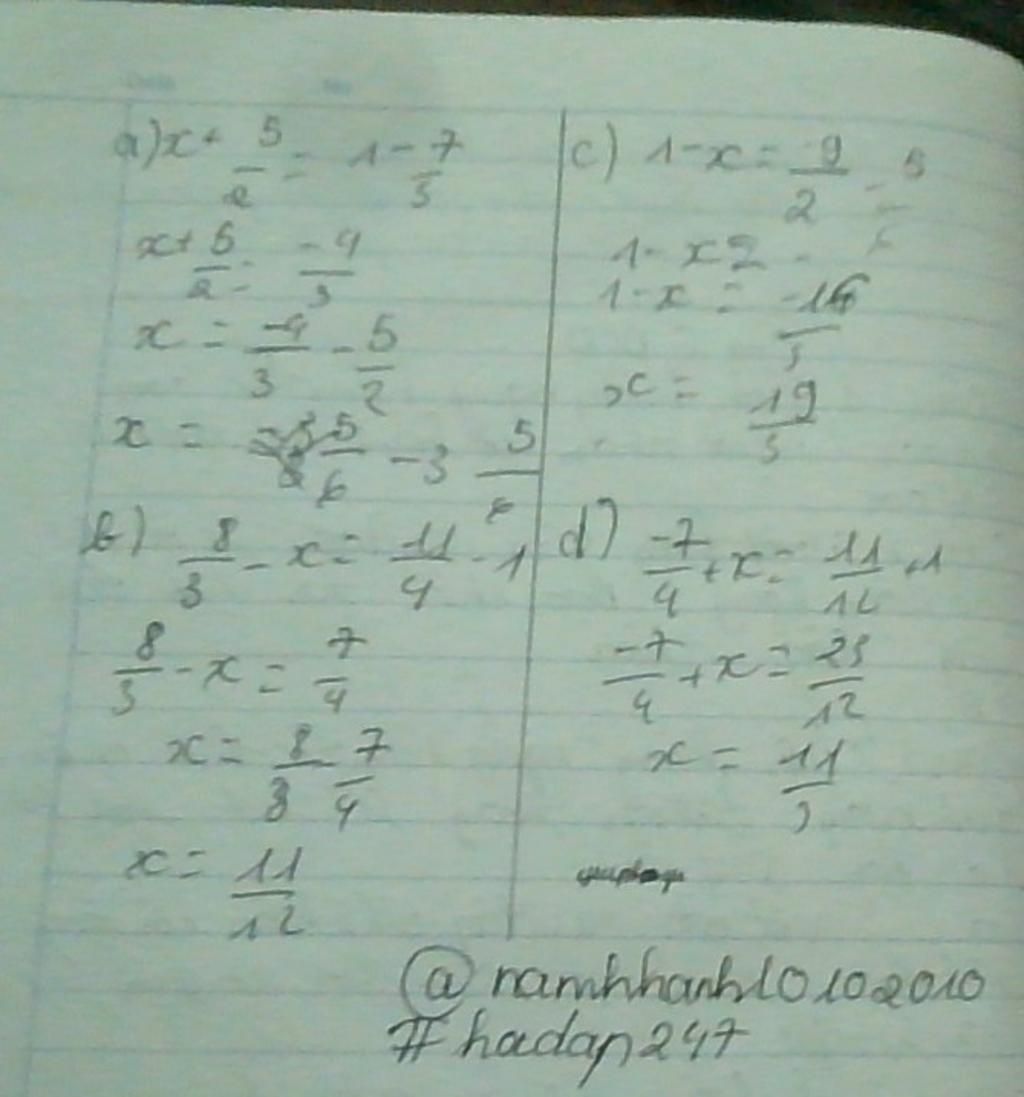 a) x + 5/2 = 1 - 7/3
x + 5/2 = -4/3
x = -4/3 - 5/2
x = 5/6 - 3 5/6
b) 8/3 - x = 11/4 - 1
8/3 - x = 7/4
x = 8/3 - 7/4
x = 11/12
c) 1 - x = 9/2 - 5
1 - x
1 - x = -16/3
x = 19/3
d) -7/4 + x = 11/12 + 1
-7/4 + x = 23/12
x = 11/3
@namhhanh10102010
#hadap247